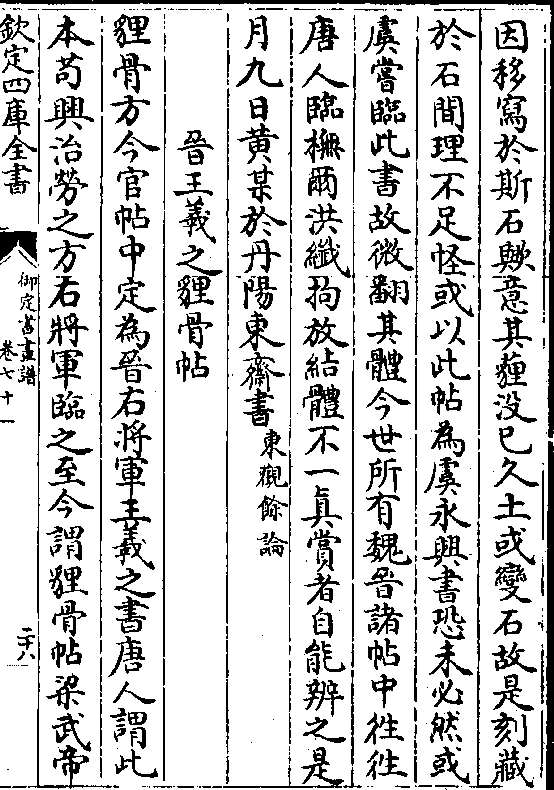 因移寫於斯石歟意其薶没已久土或變石故是刻藏
於石間理不足怪或以此帖為虞永興書恐未必然或
虞嘗臨此書故微翻其體今世所有魏晉諸帖中徃徃
唐人臨橅爾洪纖拘放結體不一真賞者自能辨之是
月九日黄某於丹陽東齋書東觀餘論
晉王羲之貍骨帖
貍骨方今官帖中定為晉右將軍王羲之書唐人謂此
本荀興治勞之方右將軍臨之至今謂貍骨帖梁武帝
欽定四庫全書
御定書畫譜
卷七十一
二十八